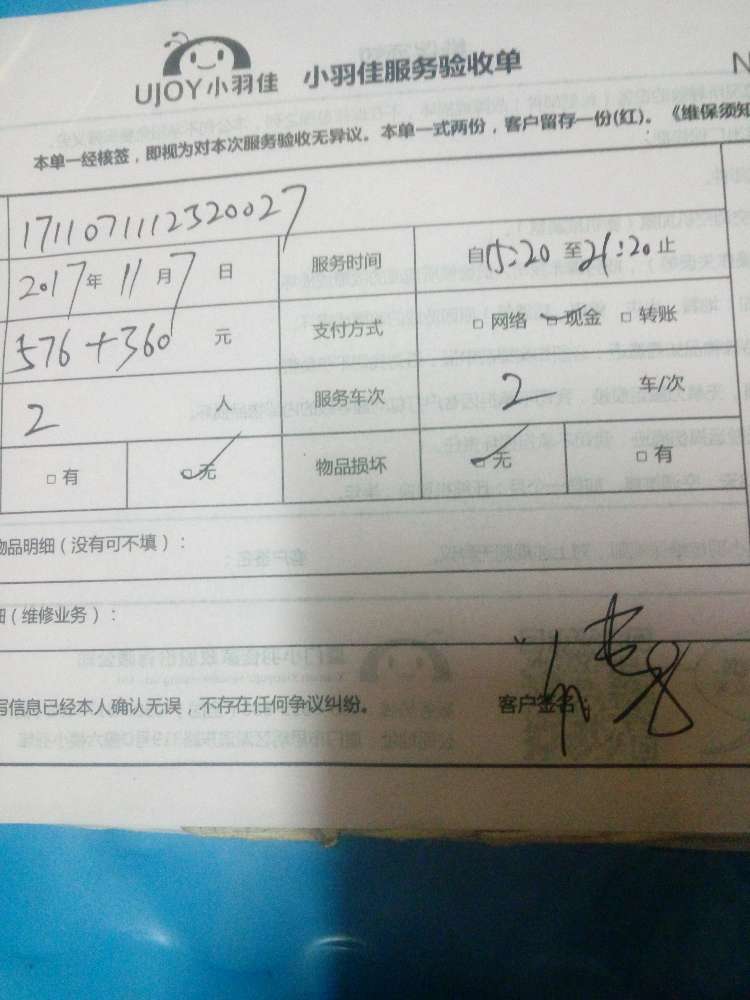 UJOY小羽佳 小羽佳服务验收单 N
本单一经核签，即视为对本次服务验收无异议。本单一式两份，客户留存一份(红)。《维保须知
1711071112320027
2017年11月7日 服务时间 自15:20至21:20止
576+360元 支付方式 □网络 □现金 □转账
2人 服务车次 2车/次
□有 □无 物品损坏 □无 □有
物品明细（没有可不填）：
细（维修业务）：
写信息已经本人确认无误，不存在任何争议纠纷。 客户签名：